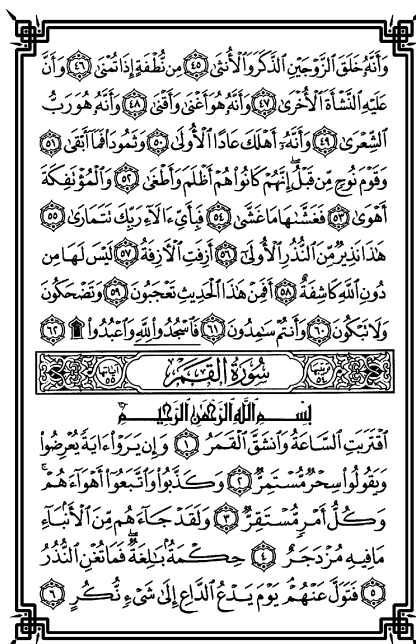 وَأَنَّهُ خَلَقَ الزَّوْجَيْنِ الذَّكَرَ وَالْأُنثَىٰ ﴿٤٥﴾ مِن نُّطْفَةٍ إِذَا تُمْنَىٰ ﴿٤٦﴾ وَأَنَّ
عَلَيْهِ النَّشْأَةَ الْأُخْرَىٰ ﴿٤٧﴾ وَأَنَّهُ هُوَ أَغْنَىٰ وَأَقْنَىٰ ﴿٤٨﴾ وَأَنَّهُ هُوَ رَبُّ
الشِّعْرَىٰ ﴿٤٩﴾ وَأَنَّهُ أَهْلَكَ عَادًا الْأُولَىٰ ﴿٥٠﴾ وَثَمُودَا فَمَا أَبْقَىٰ ﴿٥١﴾
وَقَوْمَ نُوحٍ مِّن قَبْلُ إِنَّهُمْ كَانُوا هُمْ أَظْلَمَ وَأَطْغَىٰ ﴿٥٢﴾ وَالْمُؤْتَفِكَةَ
أَهْوَىٰ ﴿٥٣﴾ فَغَشَّىٰهَا مَا غَشَّىٰ ﴿٥٤﴾ فَبِأَيِّ ءَالَآءِ رَبِّكَ تَتَمَارَىٰ ﴿٥٥﴾
هَٰذَا نَذِيرٌ مِّنَ النُّذُرِ الْأُولَىٰ ﴿٥٦﴾ أَزِفَتِ الْآزِفَةُ ﴿٥٧﴾ لَيْسَ لَهَا مِن
دُونِ اللَّهِ كَاشِفَةٌ ﴿٥٨﴾ أَفَمِنْ هَٰذَا الْحَدِيثِ تَعْجَبُونَ ﴿٥٩﴾ وَتَضْحَكُونَ
وَلَا تَبْكُونَ ﴿٦٠﴾ وَأَنتُمْ سَٰمِدُونَ ﴿٦١﴾ فَاسْجُدُوا لِلَّهِ وَاعْبُدُوا ۩ ﴿٦٢﴾
ترتيبها ٥٤ سُورَةُ القَمَرِ آياتها ٥٥
بِسْمِ اللَّهِ الرَّحْمَٰنِ الرَّحِيمِ
اقْتَرَبَتِ السَّاعَةُ وَانشَقَّ الْقَمَرُ ﴿١﴾ وَإِن يَرَوْا ءَايَةً يُعْرِضُوا
وَيَقُولُوا سِحْرٌ مُّسْتَمِرٌّ ﴿٢﴾ وَكَذَّبُوا وَاتَّبَعُوا أَهْوَآءَهُمْ ۚ
وَكُلُّ أَمْرٍ مُّسْتَقِرٌّ ﴿٣﴾ وَلَقَدْ جَآءَهُم مِّنَ الْأَنۢبَآءِ
مَا فِيهِ مُزْدَجَرٌ ﴿٤﴾ حِكْمَةٌۢ بَٰلِغَةٌ ۖ فَمَا تُغْنِ النُّذُرُ
﴿٥﴾ فَتَوَلَّ عَنْهُمْ ۘ يَوْمَ يَدْعُ الدَّاعِ إِلَىٰ شَىْءٍ نُّكُرٍ ﴿٦﴾